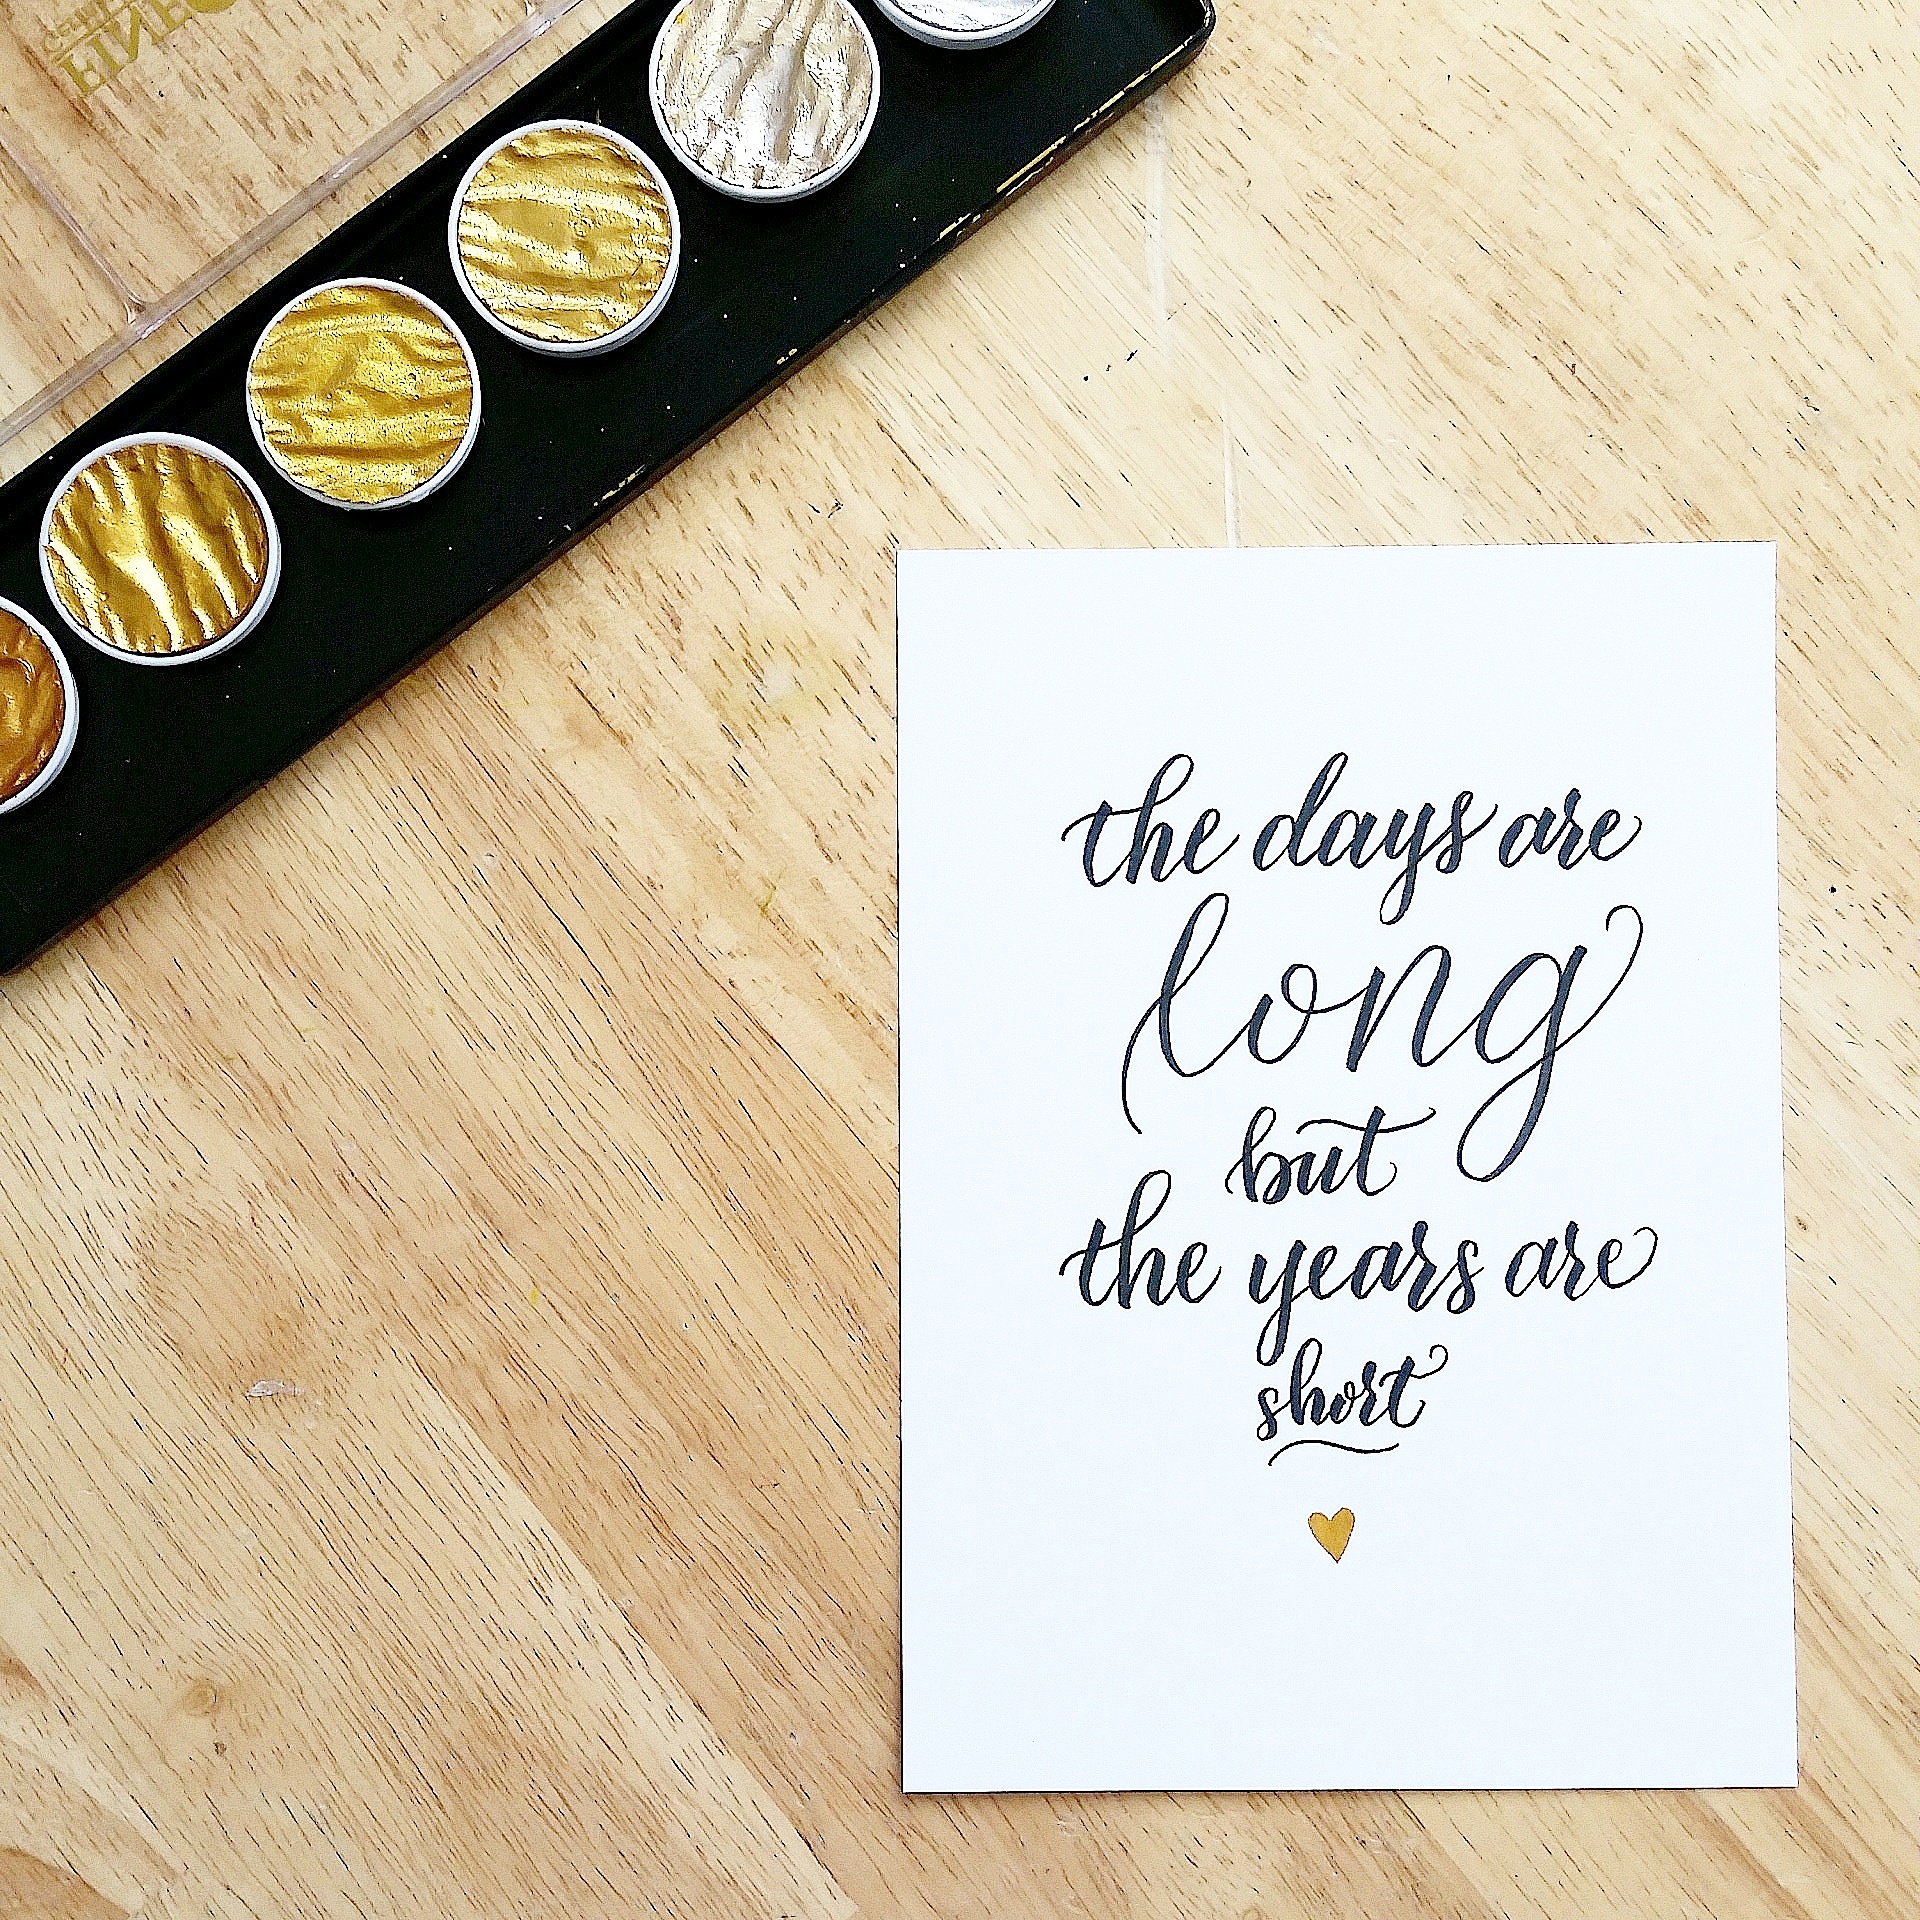 FINEC
the days are
long
but
the years are
short